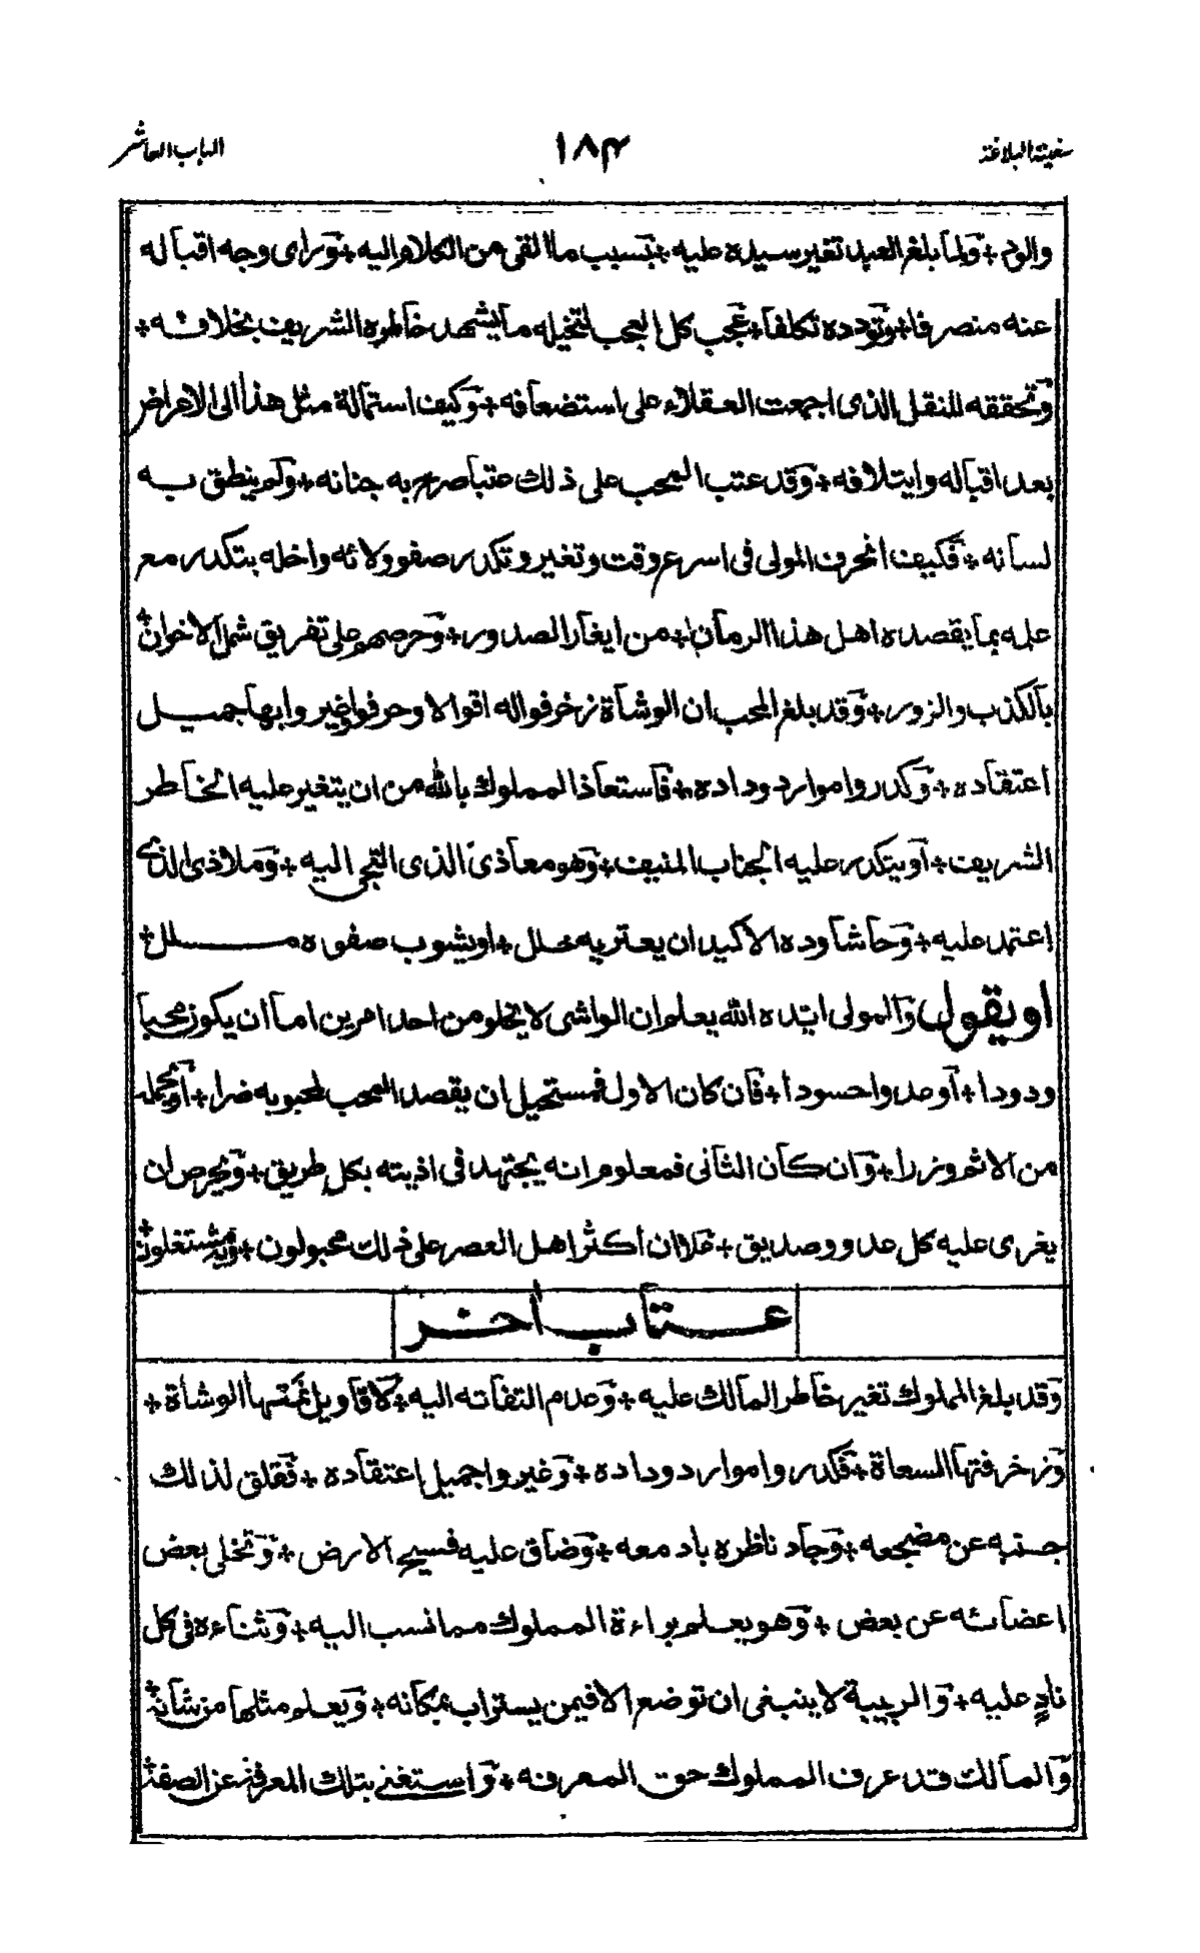 سفينة البلاغة ١٨٣ الباب العاشر
والوم + ولما بلغ العبد تغير سيده عليه + بسبب ما القى من الكلام اليه + وراى وجه اقباله
عنه منصرفا + وتودده تكلفا + عجب كل العجب لتخيله ما يشهد خاطره الشريف بخلافه +
وتحققه للنقل الذى اجمعت العقلاء على استضعافه + وكيف استمالة مثل هذا الى الاعراض
بعد اقباله وايتلافه + وقد عتب المحب على ذلك عتبا صرح به جنانه + ولم ينطق به
لسانه + فكيف انحرف المولى فى اسرع وقت وتغير وتكدر صفو ولائه واخله بتكدر مع
علمه بما يقصده اهل هذا الزمان + من ايغار الصدور + وحرصهم على تفريق شمل الاخوان +
بالكذب والزور + وقد بلغ المحب ان الوشاة زخرفوا له اقوالا وحرفوا وغيروا بها جميل
اعتقاده + وكدروا موارد وداده + فاستعاذ المملوك بالله من ان يتغير عليه الخاطر
الشريف + او يتكدر عليه الجناب المنيف + وهو معاذى الذى التجى اليه + وملاذى الذى
اعتمد عليه + وحاشا وده الاكيد ان يعتريه خلل + او يشوب صفوه ملل +
او يقول والمولى ايده الله يعلم ان الواشى لا يخلو من احد امرين اما ان يكون محبا
ودودا + او عدوا حسودا + فان كان الاول فمستحيل ان يقصد المحب لمحبوبه ضرا + او يحمله
من الاثم وزرا + وان كان الثانى فمعلوم انه يجتهد فى اذيته بكل طريق + ويحرص ان
يغرى عليه كل عدو وصديق + خلا ان أكثر اهل العصر على ذلك مجبولون + وبه مشتغلون +
عتاب اخر
وقد بلغ المملوك تغير خاطر المالك عليه + وعدم التفاته اليه + لاقاويل نمتها الوشاة +
وزخرفتها السعاة + فكدروا موارد وداده + وغيروا جميل اعتقاده + فقلق لذلك
جنبه عن مضجعه + وجاد ناظره بادمعه + وضاق عليه فسيح الارض + وتخلى بعض
اعضائه عن بعض + وهو يعلم براءة المملوك مما نسب اليه + وثناءه فى كل
نادٍ عليه + والريبة لا ينبغى ان توضع الا فيمن يستراب بمكانه + ويعلم مثلها من شانه +
والمالك قد عرف المملوك حق المعرفه + واستغنى بتلك المعرفة عن الصفة +